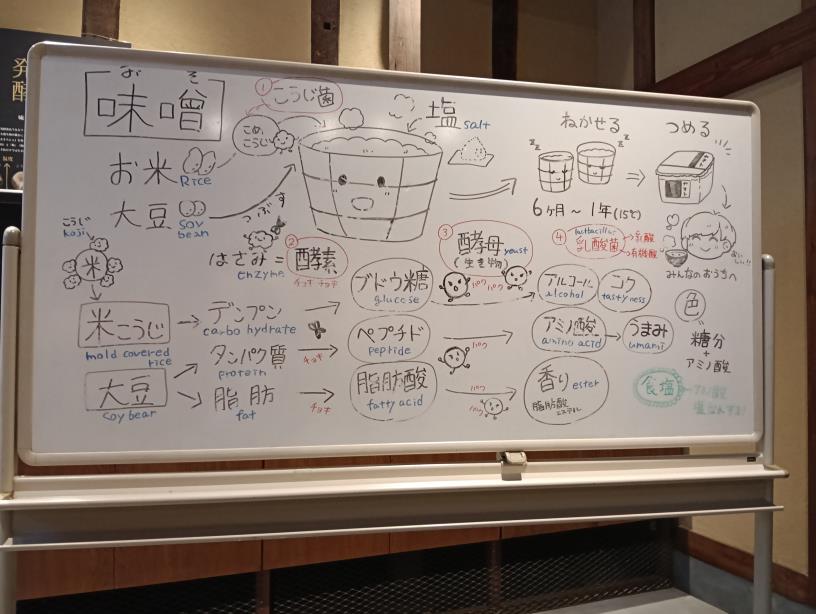 味噌
お そ
① こうじ菌
こめ、こうじ
お米 Rice
大豆 soy bean
つぶす
塩 salt
ねかせる
zz
zz
6ヶ月〜1年(15℃)
つめる
おいしい!!
みんなのおうちへ
こうじ
koji
米
はさみ = ② 酵素
enzyme
チョキ チョキ
③ 酵母 yeast
(生き物)
④ lactbacillus
乳酸菌 → 乳酸
→ 有機酸
米こうじ
mold covered rice
デンプン
carbo hydrate
ブドウ糖
glucose
パク パク
アルコール
alcohol
コク
tasty ness
大豆
soy bean
タンパク質
protein
チョキ
ペプチド
peptide
パク
アミノ酸
amino acid
うまみ
umami
脂肪
fat
チョキ
脂肪酸
fatty acid
パク
パク
香り ester
脂肪酸エステル
色
糖分
+
アミノ酸
食塩